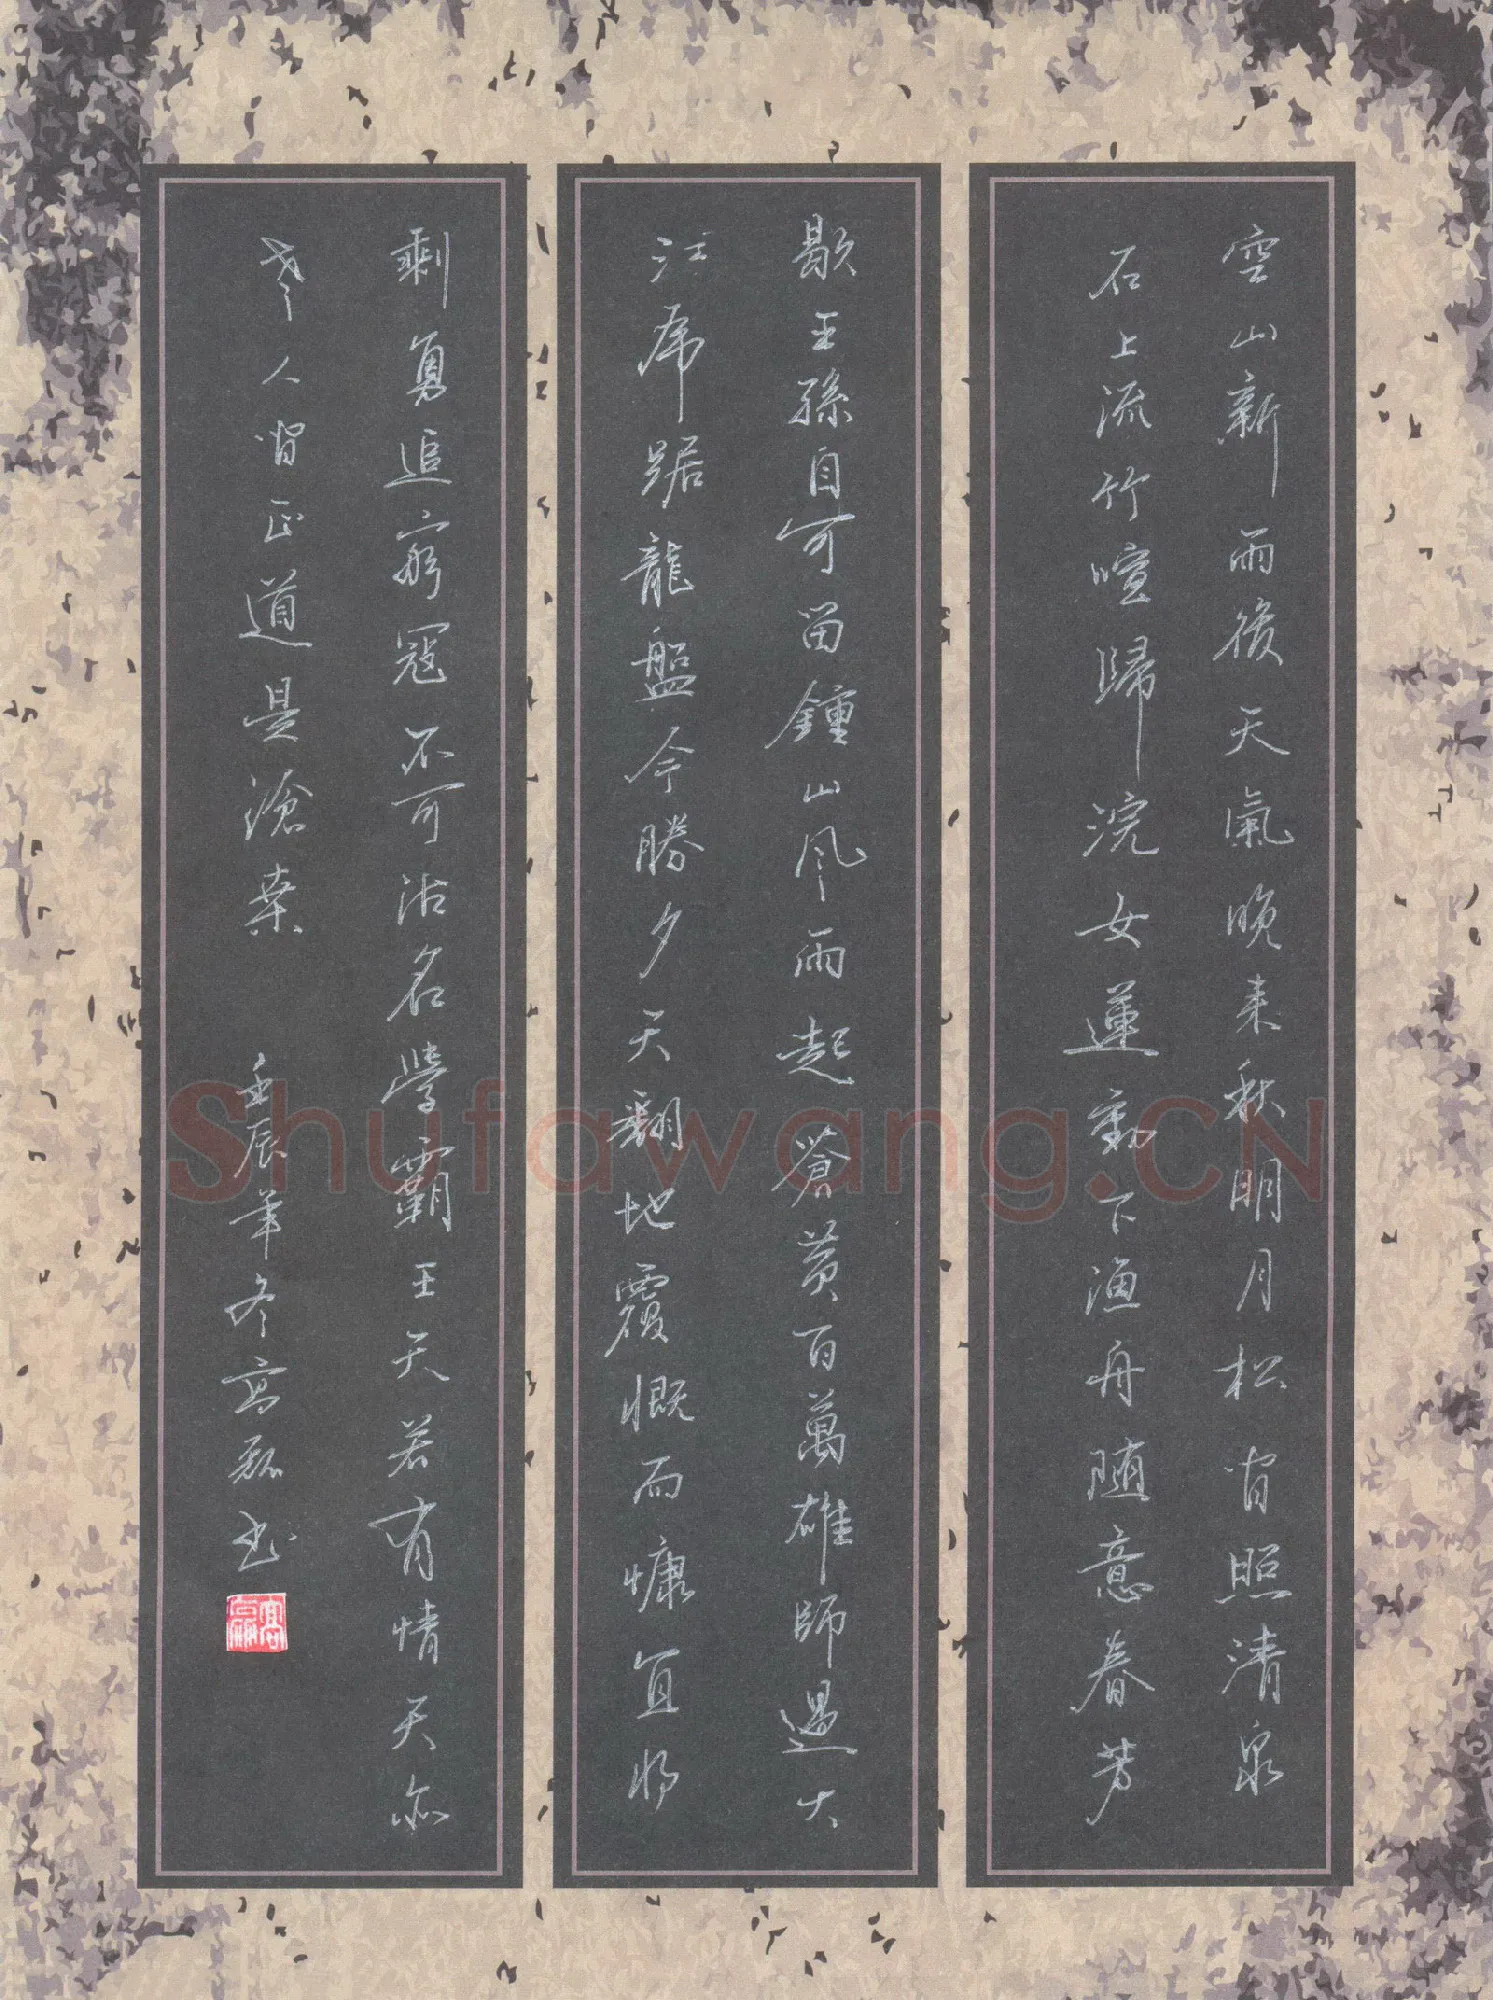 空山新雨後天氣晚来秋明月松間照清泉
石上流竹喧歸浣女蓮動下渔舟随意春芳
歇王孫自可留鍾山风雨起蒼黄百萬雄師過大
江虎踞龍盤今勝夕天翻地覆慨而慷宜将
剩勇追窮寇不可沽名學霸王天若有情天亦
老人間正道是滄桒
壬辰年冬高磊书
Shufawang.CN